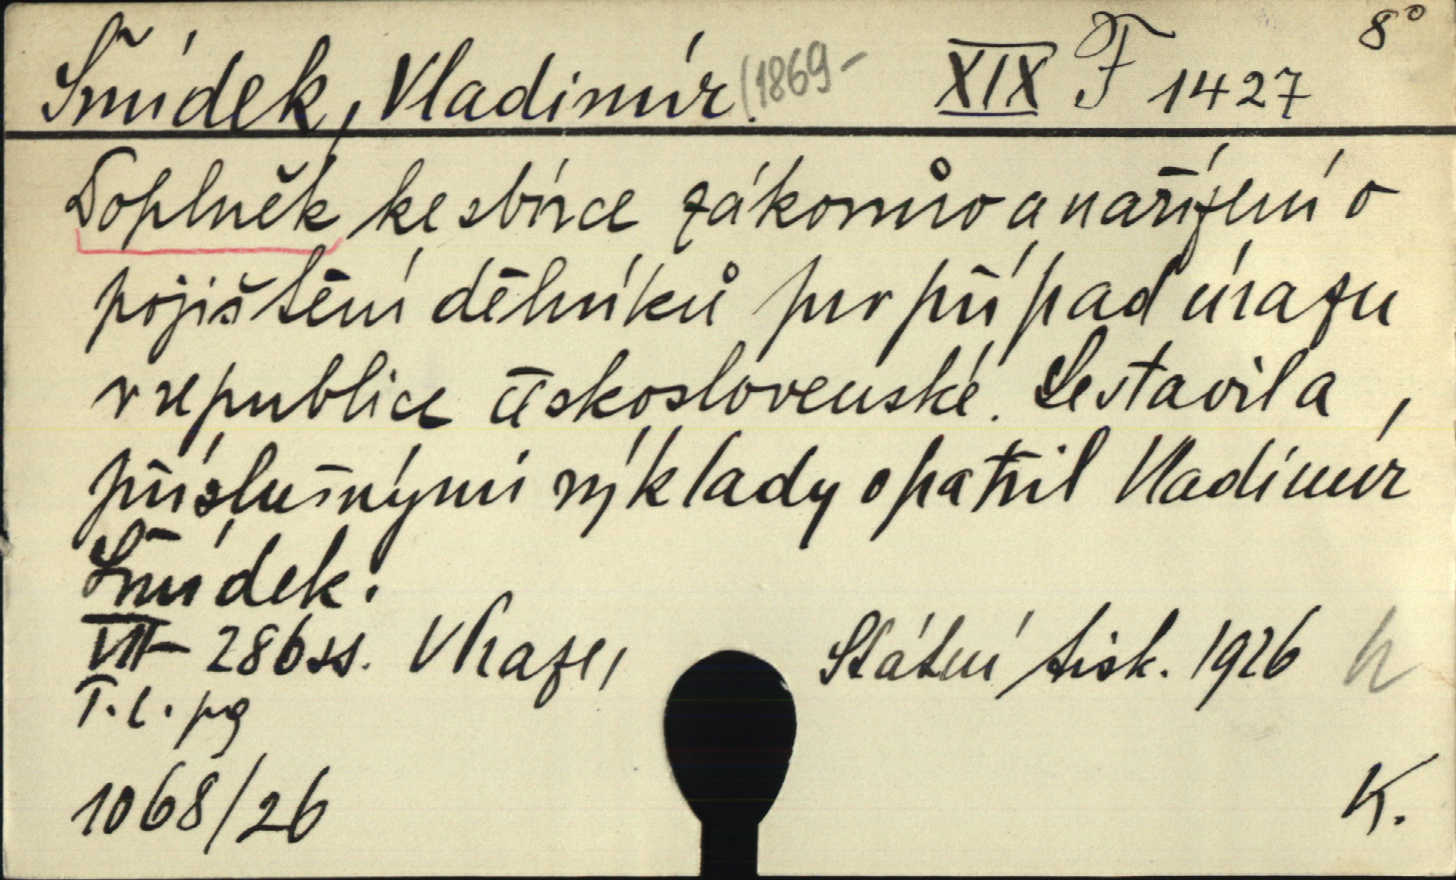 Šmídek, Vladimír. (1869- XIX F 1427 8°
Doplněk ke sbírce zákonův a nařízení o
pojištění dělníků pro případ úrazu
v republice československé. Sestavil a
příslušnými výklady opatřil Vladimír
Šmídek.
VII - 286 ss. V Praze, Státní tisk. 1926 h
T. l. pg
1068/26 K.